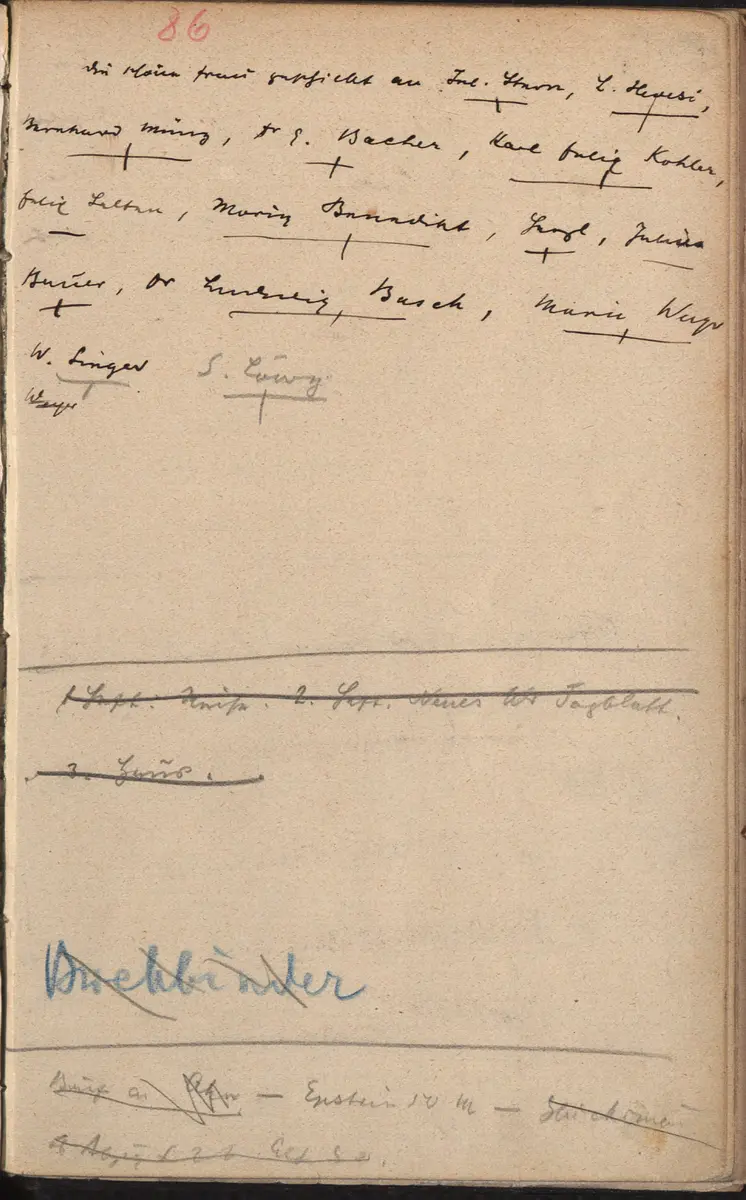 86
Die schöne Frau geschickt an Jul. Stern, L. Hevesi,
Bernhard Münz, Dr E. Bacher, Karl Felix Kohler,
Felix Salten, Moriz Benedikt, Julius
Bauer, Dr Ludwig Basch, Marie Weyr
W. Singer S. Löwy
Weyr
1 Sept. 2. Sept. Neues Wr Tagblatt.
3.
Buchbinder
Brief a. — Epstein 50 M —